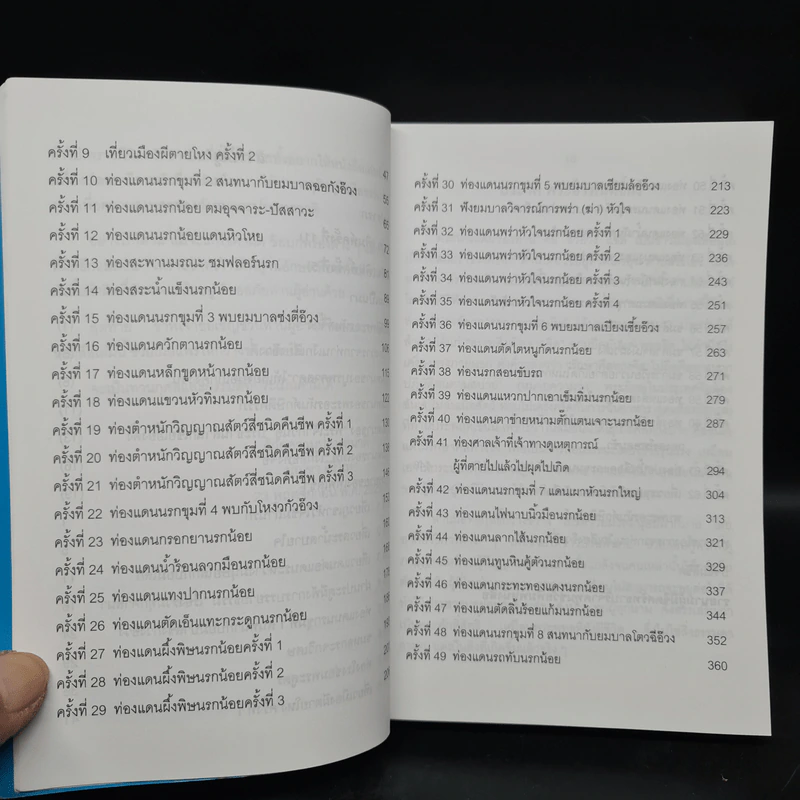 ครั้งที่ 9 เที่ยวเมืองผีตายโหง ครั้งที่ 2 47
ครั้งที่ 10 ท่องแดนนรกขุมที่ 2 สนทนากับยมบาลฉอกังอ๊วง 56
ครั้งที่ 11 ท่องแดนนรกน้อย ตมอุจจาระ-ปัสสาวะ 65
ครั้งที่ 12 ท่องแดนนรกน้อยแดนหิวโหย 72
ครั้งที่ 13 ท่องสะพานมรณะ ชมฟลอร์นรก 81
ครั้งที่ 14 ท่องสระน้ำแข็งนรกน้อย
ครั้งที่ 15 ท่องแดนนรกขุมที่ 3 พบยมบาลซ่งตี่อ๊วง
ครั้งที่ 16 ท่องแดนควักตานรกน้อย
ครั้งที่ 17 ท่องแดนหลักขูดหน้านรกน้อย
ครั้งที่ 18 ท่องแดนแขวนหัวทิ่มนรกน้อย
ครั้งที่ 19 ท่องตำหนักวิญญาณสัตว์สี่ชนิดคืนชีพ ครั้งที่ 1
ครั้งที่ 20 ท่องตำหนักวิญญาณสัตว์สี่ชนิดคืนชีพ ครั้งที่ 2
ครั้งที่ 21 ท่องตำหนักวิญญาณสัตว์สี่ชนิดคืนชีพ ครั้งที่ 3
ครั้งที่ 22 ท่องแดนนรกขุมที่ 4 พบกับโหงวกัวอ๊วง
ครั้งที่ 23 ท่องแดนกรอกยานรกน้อย
ครั้งที่ 24 ท่องแดนน้ำร้อนลวกมือนรกน้อย
ครั้งที่ 25 ท่องแดนแทงปากนรกน้อย
ครั้งที่ 26 ท่องแดนตัดเอ็นแทะกระดูกนรกน้อย
ครั้งที่ 27 ท่องแดนผึ้งพิษนรกน้อยครั้งที่ 1
ครั้งที่ 28 ท่องแดนผึ้งพิษนรกน้อยครั้งที่ 2
ครั้งที่ 29 ท่องแดนผึ้งพิษนรกน้อยครั้งที่ 3
ครั้งที่ 30 ท่องแดนนรกขุมที่ 5 พบยมบาลเซียมล้ออ๊วง 213
ครั้งที่ 31 ฟังยมบาลวิจารณ์การพร่า (ฆ่า) หัวใจ 223
ครั้งที่ 32 ท่องแดนพร่าหัวใจนรกน้อย ครั้งที่ 1 229
ครั้งที่ 33 ท่องแดนพร่าหัวใจนรกน้อย ครั้งที่ 2 236
ครั้งที่ 34 ท่องแดนพร่าหัวใจนรกน้อย ครั้งที่ 3 243
ครั้งที่ 35 ท่องแดนพร่าหัวใจนรกน้อย ครั้งที่ 4 251
ครั้งที่ 36 ท่องแดนนรกขุมที่ 6 พบยมบาลเปียงเซี้ยอ๊วง 257
ครั้งที่ 37 ท่องแดนตัดไตหนูกัดนรกน้อย 263
ครั้งที่ 38 ท่องนรกสอนขับรถ 271
ครั้งที่ 39 ท่องแดนแหวกปากเอาเข็มทิ่มนรกน้อย 279
ครั้งที่ 40 ท่องแดนตาข่ายหนามตั๊กแตนเจาะนรกน้อย 287
ครั้งที่ 41 ท่องศาลเจ้าที่เจ้าทางดูเหตุการณ์
ผู้ที่ตายไปแล้วไปผุดไปเกิด 294
ครั้งที่ 42 ท่องแดนนรกขุมที่ 7 แดนเผาหัวนรกใหญ่ 304
ครั้งที่ 43 ท่องแดนไฟนาบนิ้วมือนรกน้อย 313
ครั้งที่ 44 ท่องแดนลากไส้นรกน้อย 321
ครั้งที่ 45 ท่องแดนทูนหินคู้ตัวนรกน้อย 329
ครั้งที่ 46 ท่องแดนกระทะทองแดงนรกน้อย 337
ครั้งที่ 47 ท่องแดนตัดลิ้นร้อยแก้มนรกน้อย 344
ครั้งที่ 48 ท่องแดนนรกขุมที่ 8 สนทนากับยมบาลโตวฉีอ๊วง 352
ครั้งที่ 49 ท่องแดนรถทับนรกน้อย 360